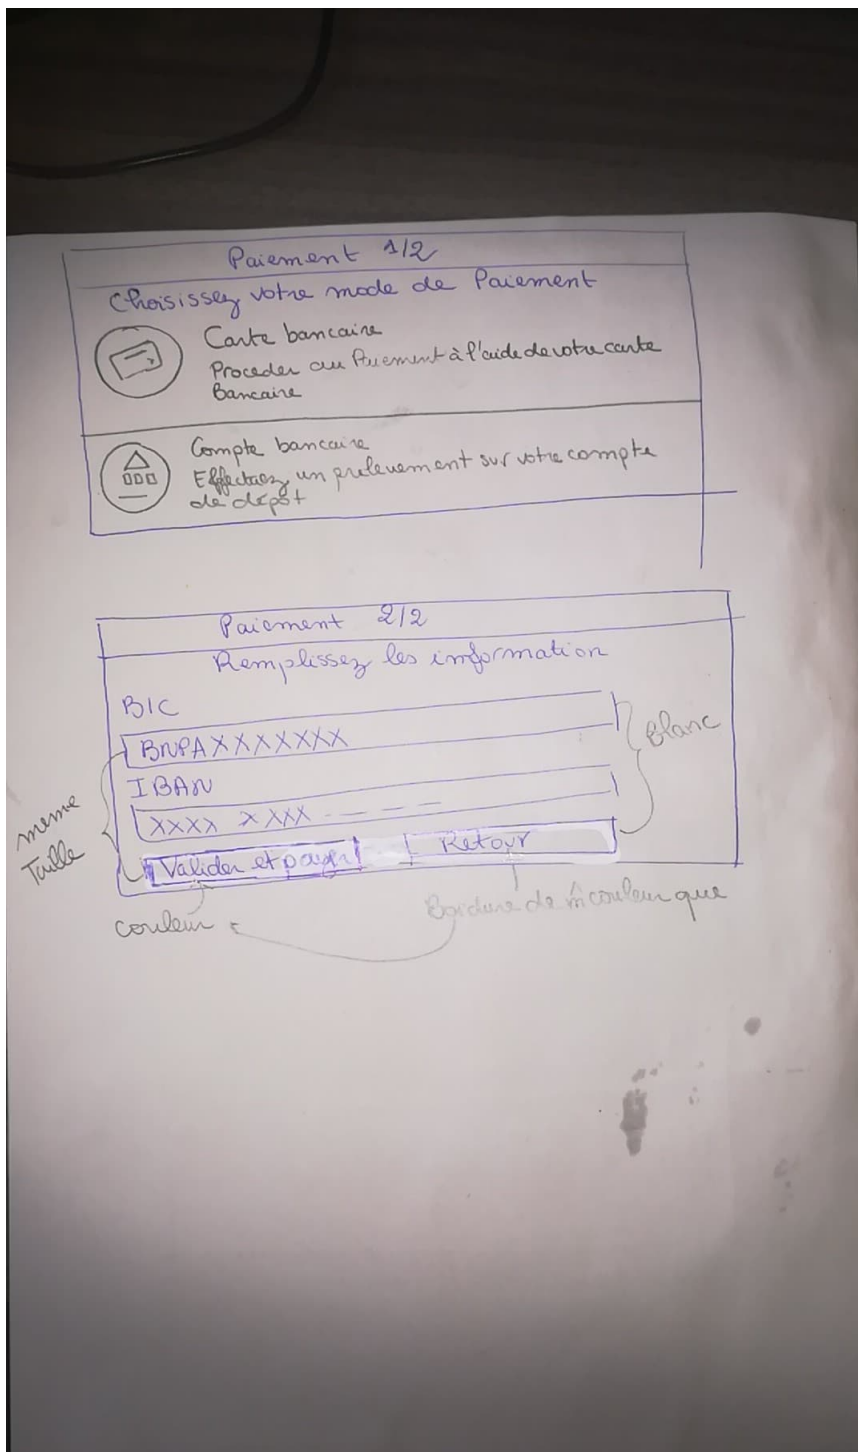 Paiement 1/2
Choisissez votre mode de Paiement
Carte bancaire
Proceder au Paiement à l'aide de votre carte
Bancaire
Compte bancaire
Effectuez un prelevement sur votre compte
de dépôt
Paiement 2/2
Remplissez les information
BIC
BNPAXXXXXXX
Blanc
IBAN
XXXX XXXX - - - -
meme
Taille
Valider et payer
Retour
Bordure de m̂ couleur que
couleur